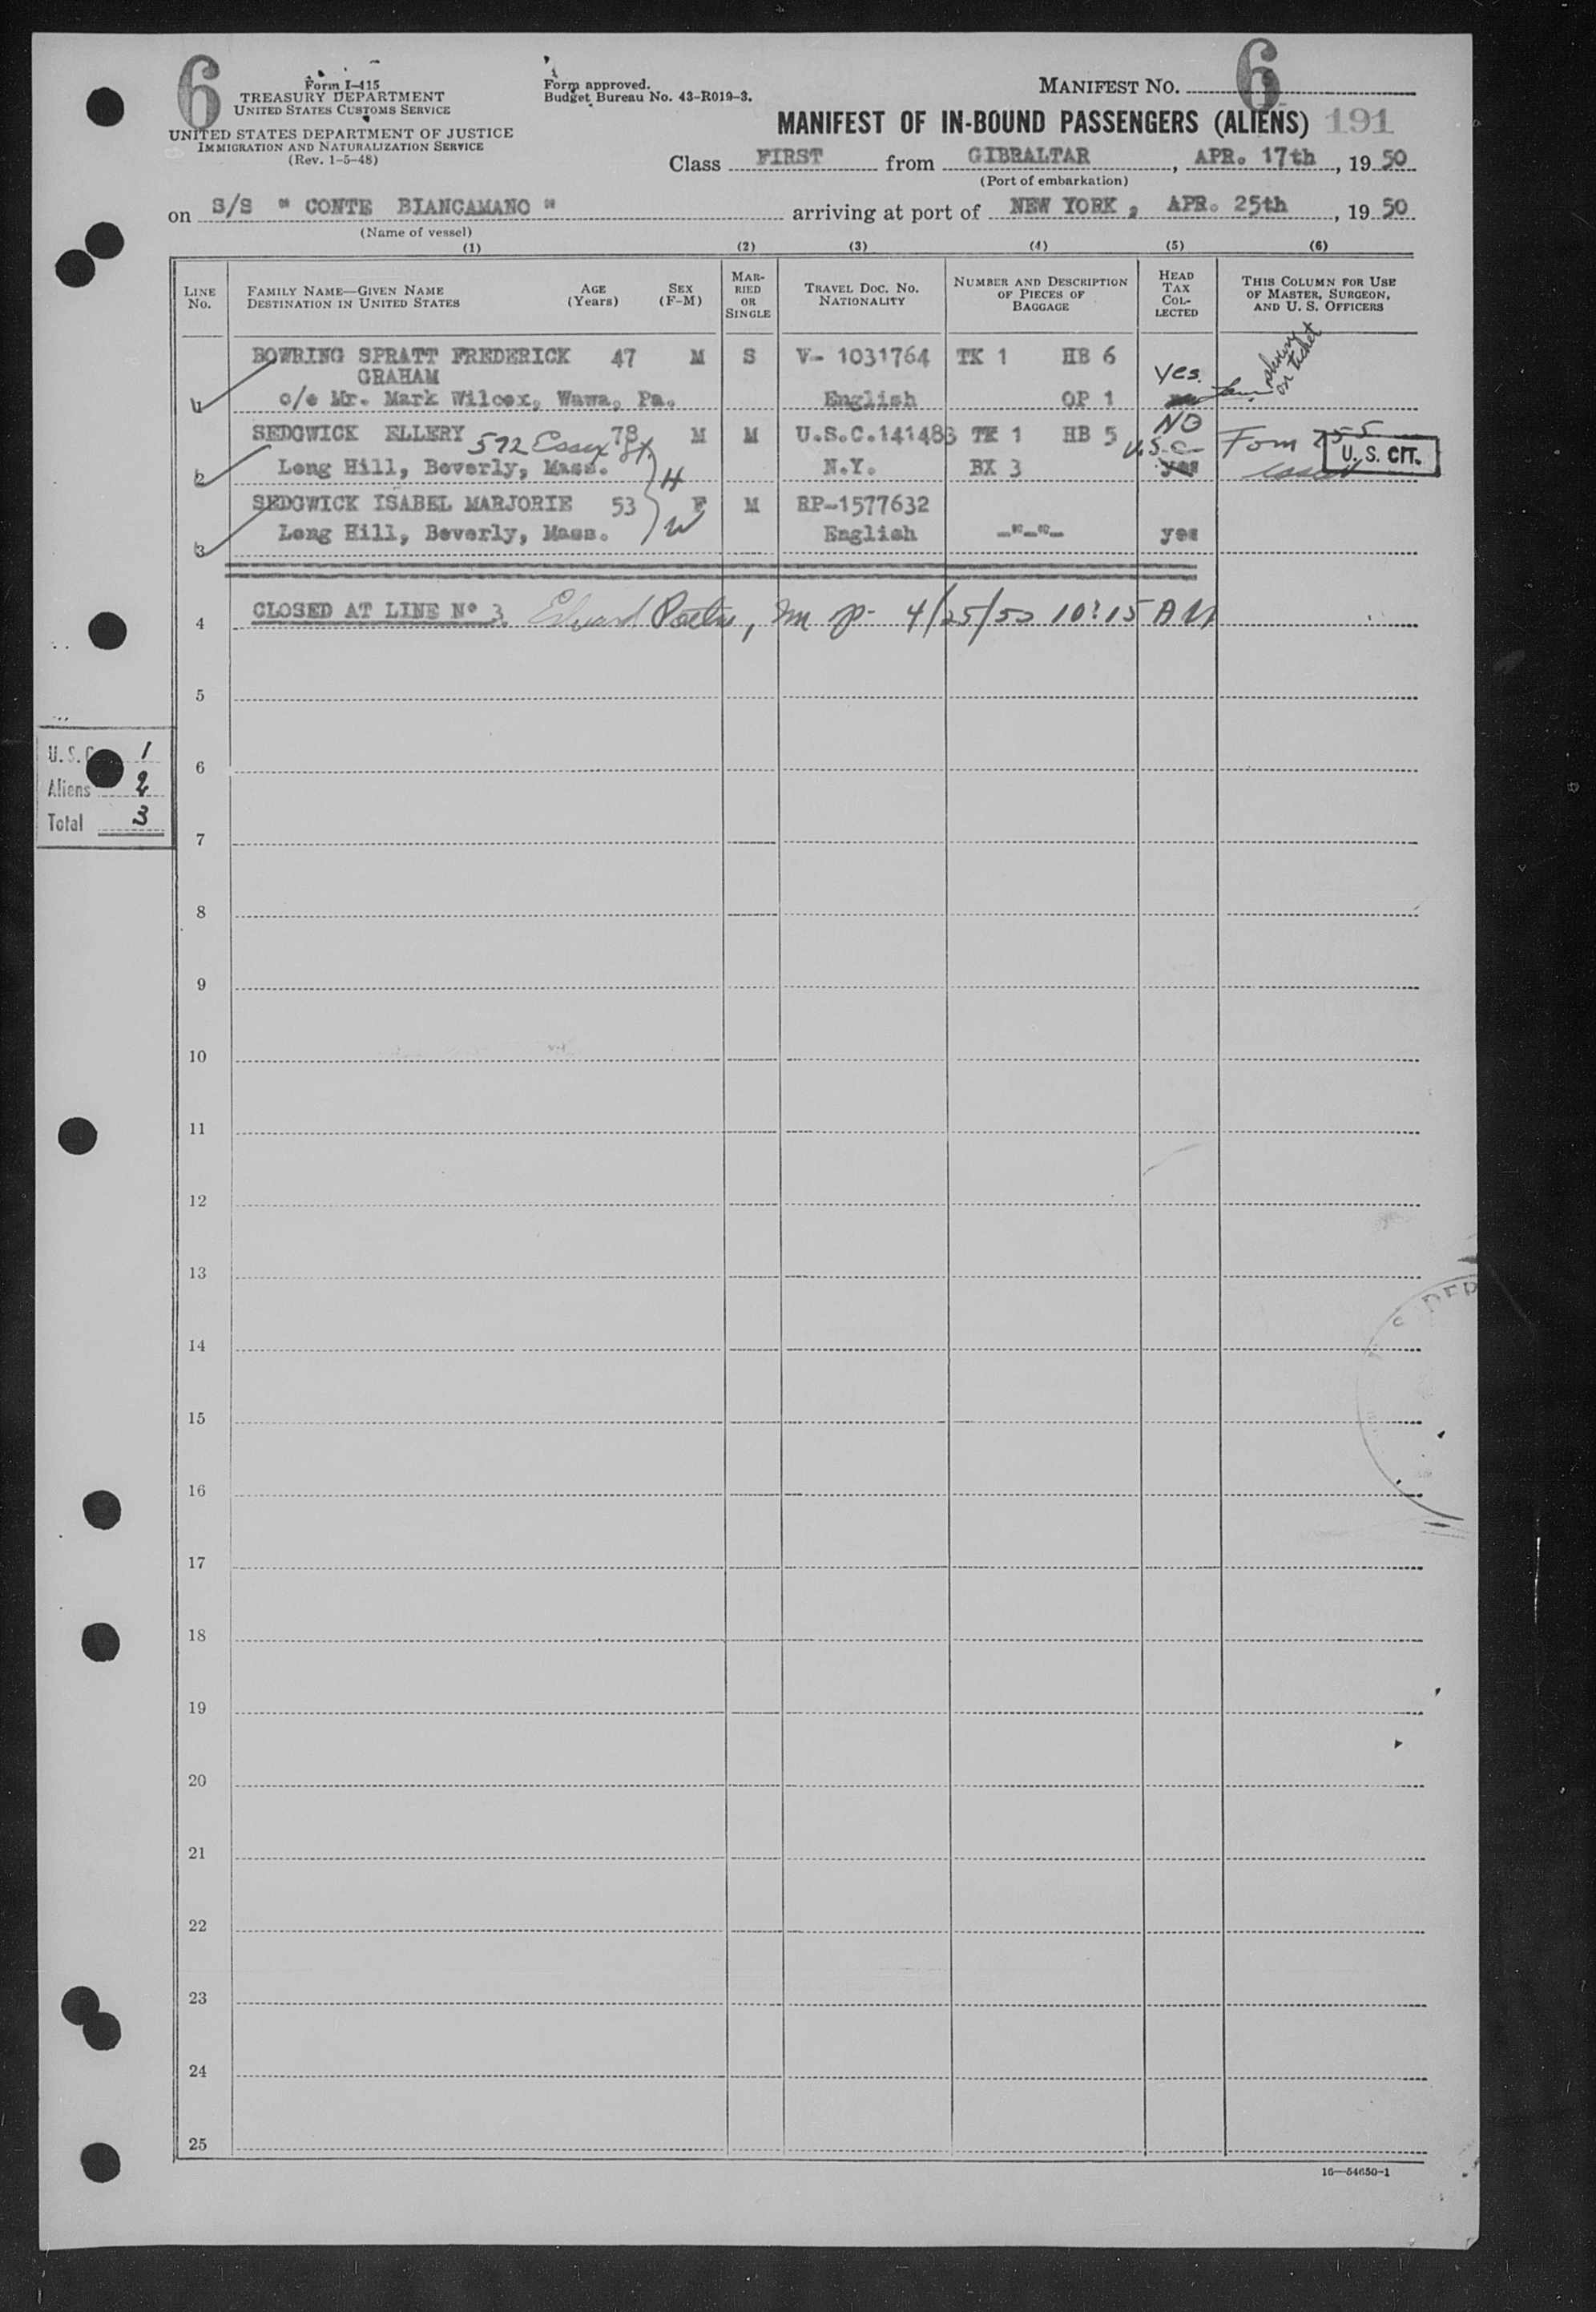 6
Form I-415
TREASURY DEPARTMENT
UNITED STATES CUSTOMS SERVICE
UNITED STATES DEPARTMENT OF JUSTICE
IMMIGRATION AND NATURALIZATION SERVICE
(Rev. 1-5-48)
Form approved.
Budget Bureau No. 43-R019-3.
MANIFEST NO. 6
MANIFEST OF IN-BOUND PASSENGERS (ALIENS) 191
Class FIRST from GIBRALTAR, APR. 17th, 19 50
(Port of embarkation)
on S/S " CONTE BIANCAMANO " arriving at port of NEW YORK, APR. 25th, 19 50
(Name of vessel)
(1) (2) (3) (4) (5) (6)
LINE No. FAMILY NAME—GIVEN NAME DESTINATION IN UNITED STATES AGE (Years) SEX (F-M) MARRIED OR SINGLE TRAVEL DOC. NO. NATIONALITY NUMBER AND DESCRIPTION OF PIECES OF BAGGAGE HEAD TAX COLLECTED THIS COLUMN FOR USE OF MASTER, SURGEON, AND U. S. OFFICERS
BOWRING SPRATT FREDERICK 47 M S V- 1031764 TK 1 HB 6
GRAHAM yes. on ticket
1 c/o Mr. Mark Wilcox, Wawa, Pa. English OP 1
SEDGWICK ELLERY 572 Essex St. 78 M M U.S.C.141483 TK 1 HB 5 NO U.S.C. Form 255
2 Long Hill, Beverly, Mass. H N.Y. BX 3 yes U. S. CIT.
SEDGWICK ISABEL MARJORIE 53 F M RP-1577632
3 Long Hill, Beverly, Mass. W English -"-"- yes
4 CLOSED AT LINE Nº 3. Edward 4/25/50 10:15 AM
5
U.S.C. 1
6
Aliens 2
Total 3
7
8
9
10
11
12
13
14
15
16
17
18
19
20
21
22
23
24
25
16—54650-1